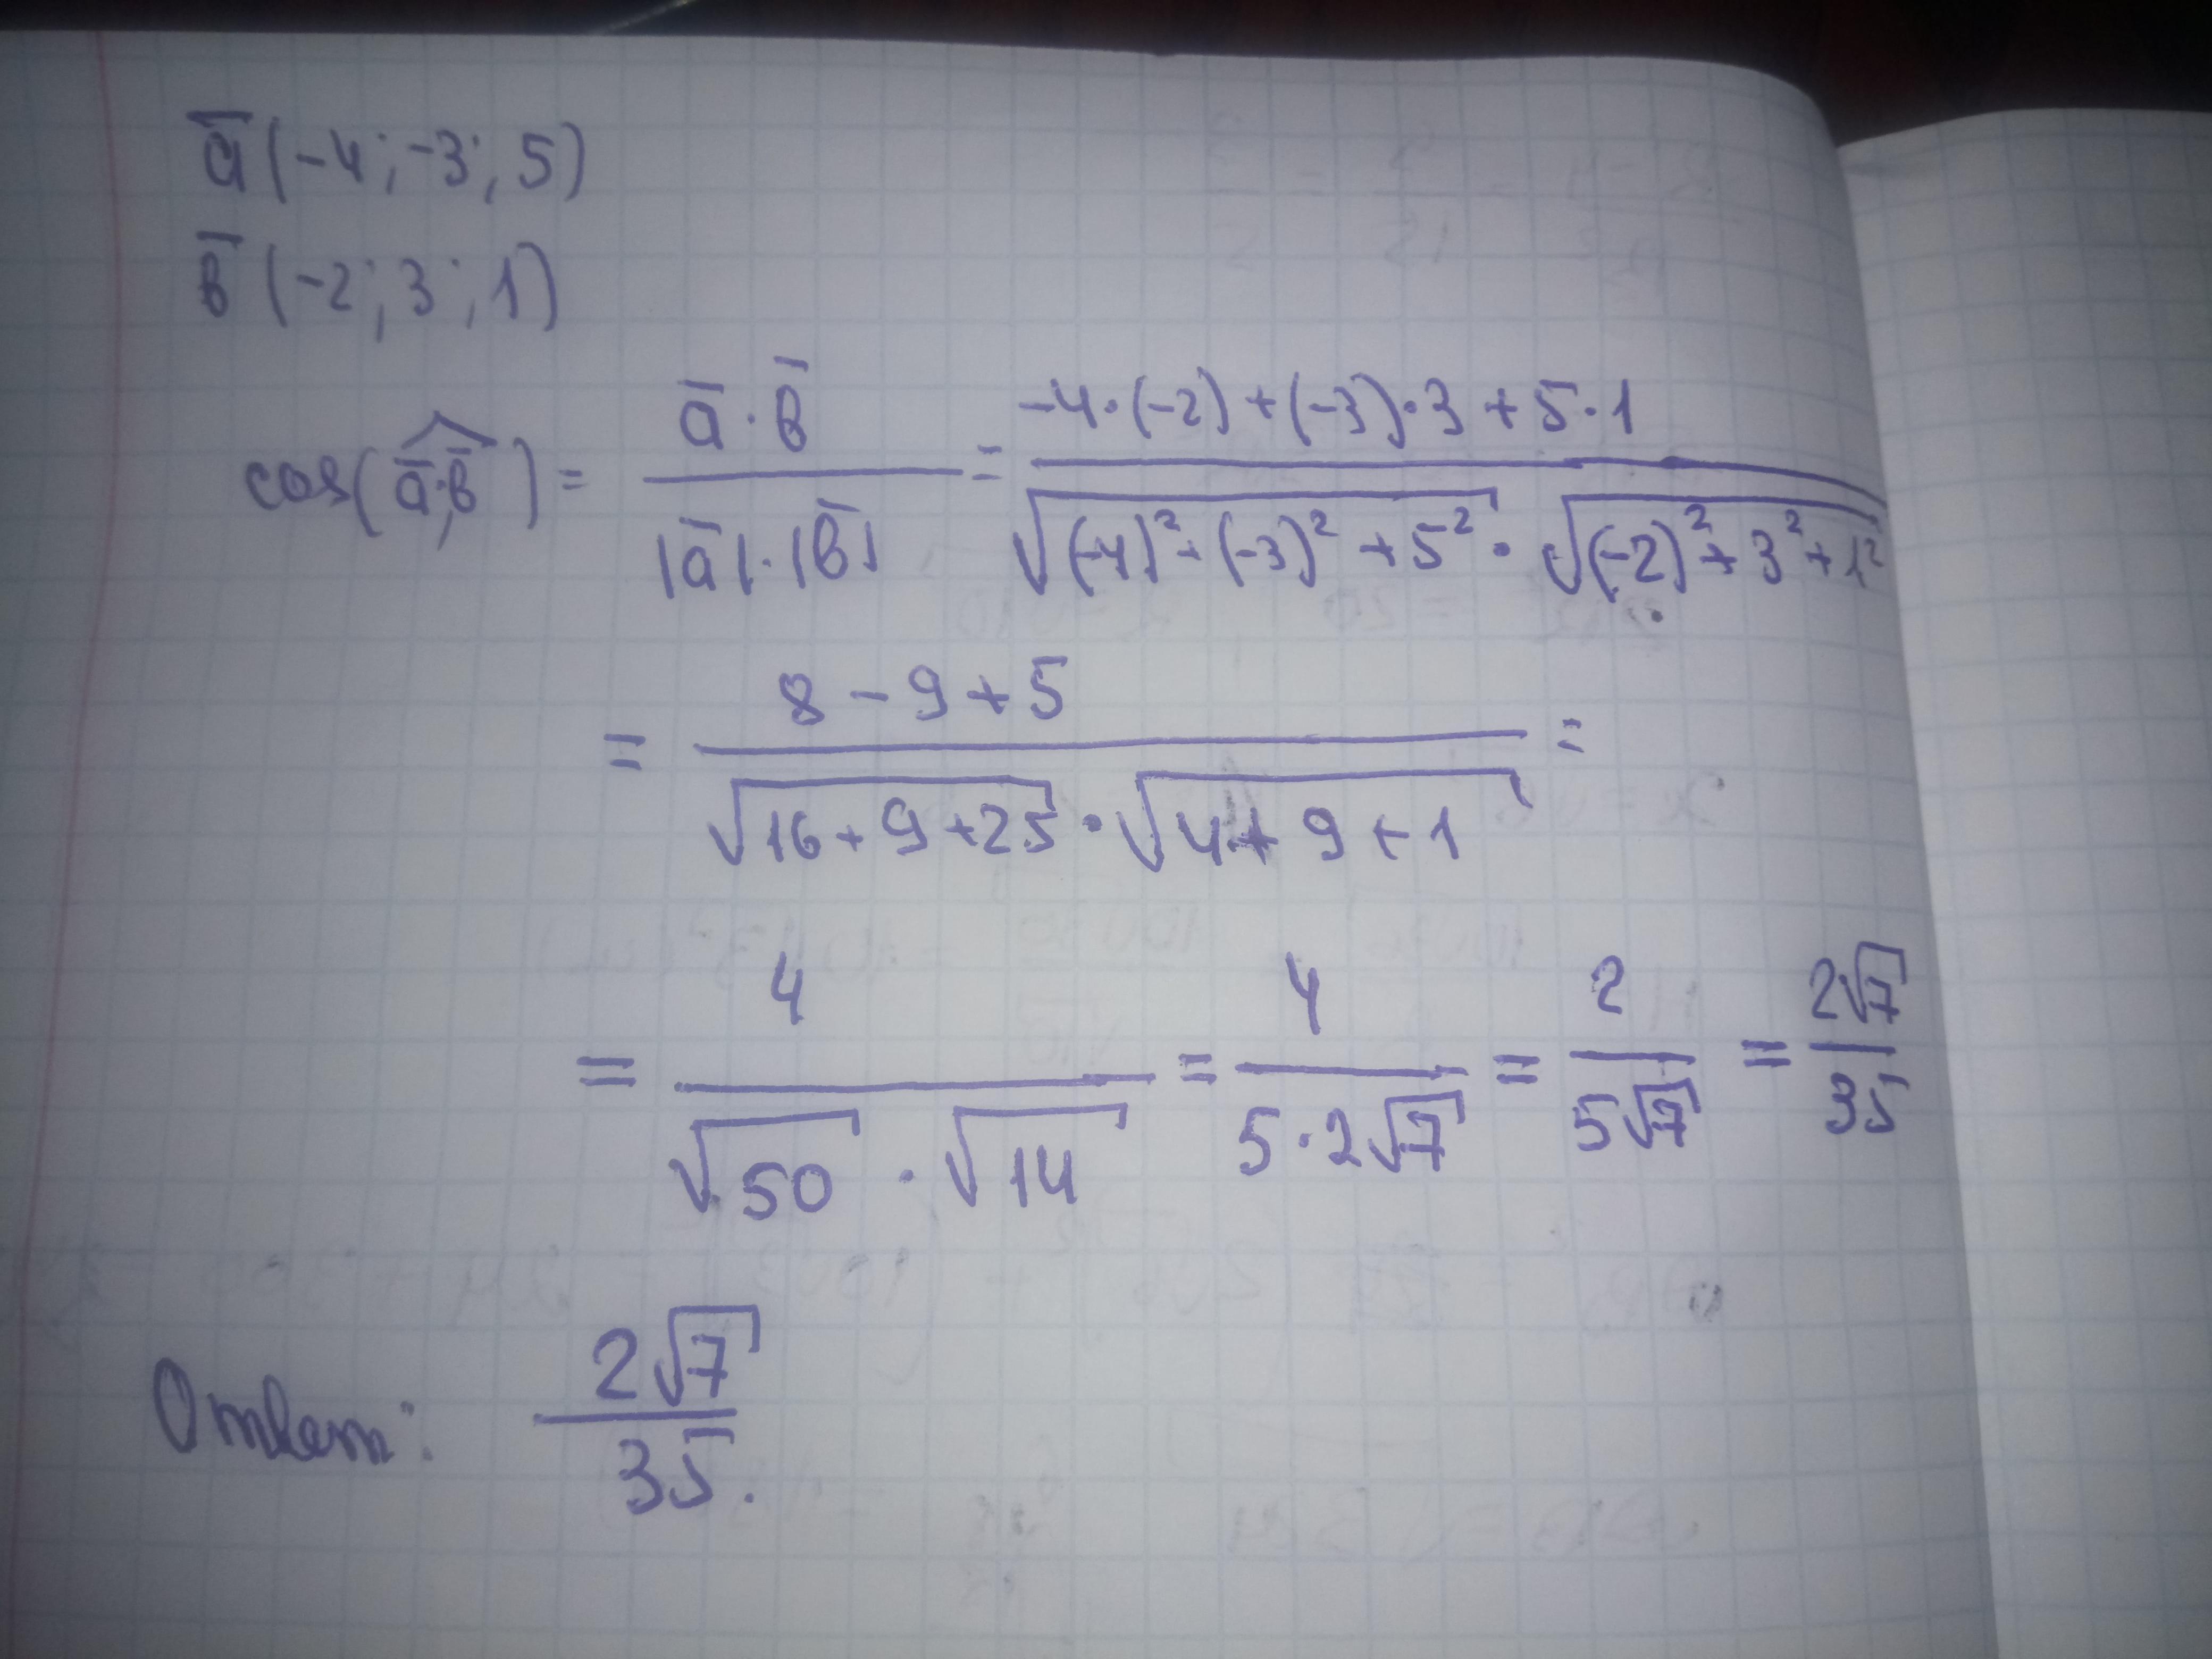 a̅ (-4; -3; 5)
b̅ (-2; 3; 1)
cos(a̅;b̅) = a̅·b̅ / |a̅|·|b̅| = -4·(-2)+(-3)·3+5·1 / √(-4)²+(-3)²+5² · √(-2)²+3²+1²
= 8-9+5 / √16+9+25 · √4+9+1 =
= 4 / √50 · √14 = 4 / 5·2√7 = 2 / 5√7 = 2√7 / 35
Ответ: 2√7 / 35.